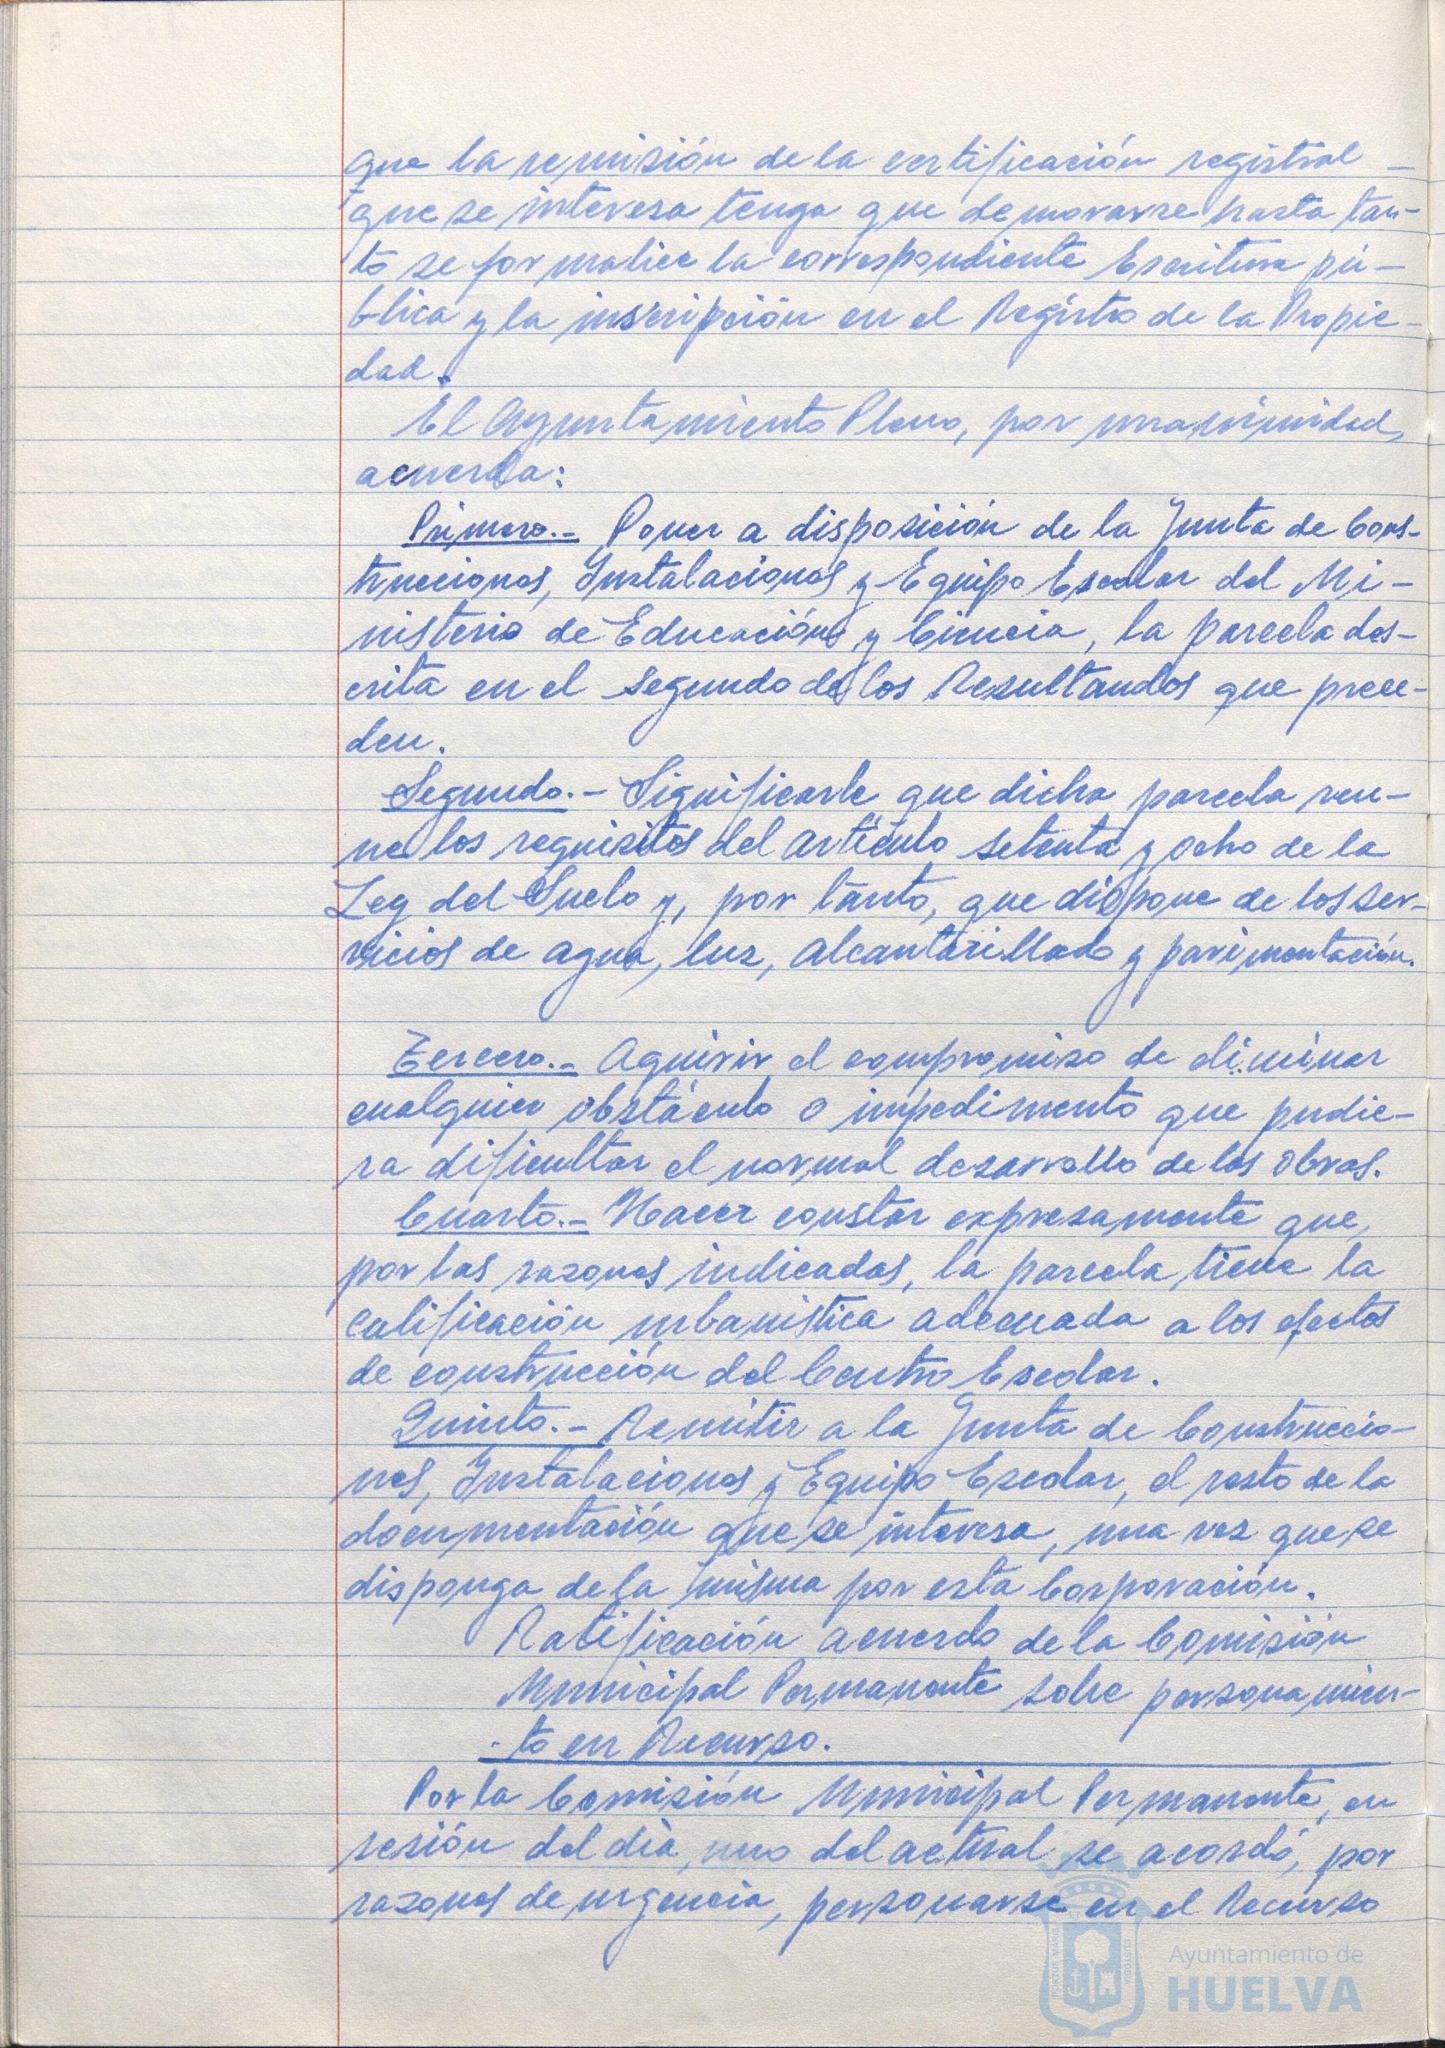 que la remisión de la certificación registral -
que se interesa tenga que demorarse hasta tan-
to se formalice la correspondiente Escritura pú-
blica y la inscripción en el Registro de la Propie-
dad.
El Ayuntamiento Pleno, por unanimidad,
acuerda:
Primero.- Poner a disposición de la Junta de Cons-
trucciones, Instalaciones y Equipo Escolar del Mi-
nisterio de Educación y Ciencia, la parcela des-
crita en el segundo de los Resultandos que prece-
den.
Segundo.- Significarle que dicha parcela reu-
ne los requisitos del artículo setenta y ocho de la
Ley del Suelo y, por tanto, que dispone de los ser-
vicios de agua, luz, alcantarillado y pavimentación.
Tercero.- Aquirir el compromiso de eliminar
cualquier obstáculo o impedimento que pudie-
ra dificultar el normal desarrollo de las obras.
Cuarto.- Hacer constar expresamente que,
por las razones indicadas, la parcela tiene la
calificación urbanistica adecuada a los efectos
de construcción del Centro Escolar.
Quinto.- Remitir a la Junta de Construccio-
nes, Instalaciones y Equipo Escolar, el resto de la
documentación que se interesa, una vez que se
disponga de la misma por esta Corporación.
Ratificación acuerdo de la Comisión
Municipal Permanente sobre personamien-
to en Recurso.
Por la Comisión Municipal Permanente, en
sesión del día uno del actual se acordó, por
razones de urgencia, personarse en el Recurso
PORTUS MARIS
CUSTODIA
Ayuntamiento de
HUELVA